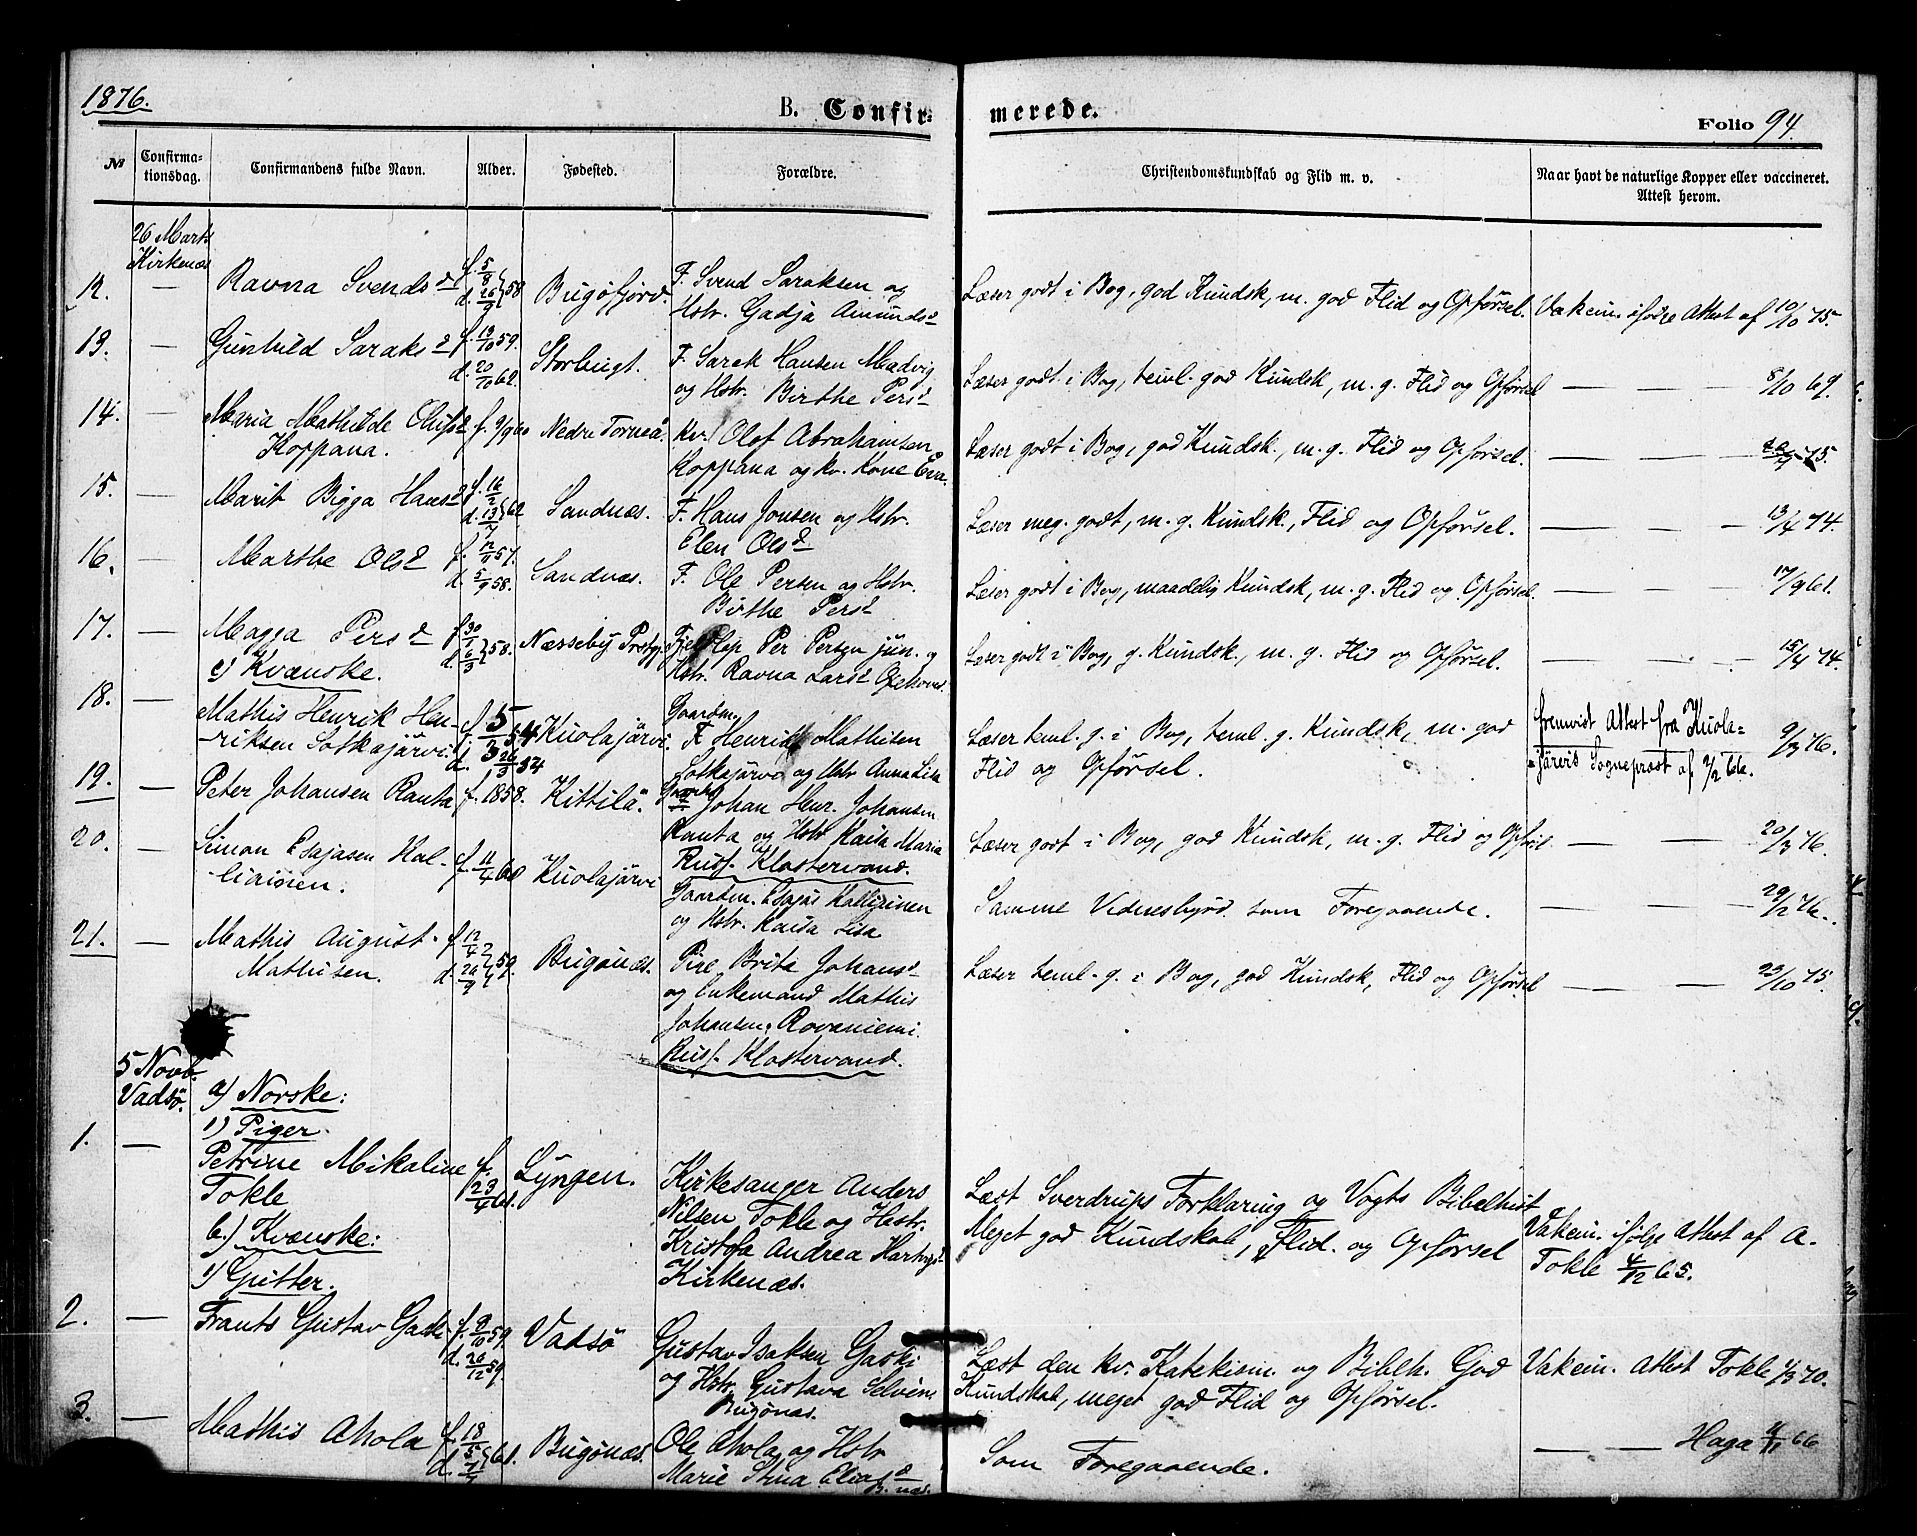 1876.
B. Confir= merede.
Folio 94.
№
Confirma-
tionsdag.
Confirmandens fulde Navn.
Alder.
Fødested.
Forældre.
Christendomskundskab og Flid m. v.
Naar havt de naturlige Kopper eller vaccineret.
Attest herom.
26 Marts
Kirkenæs
12. — Ravna Svendsd f. 5/8 d. 26/9 58 Bugöfjord. F. Svend Saraksen og
Hstr. Gadja Amundsd
Læser godt i Bog, god Kundsk, m. god Flid og Opførsel. Vakcin. ifølge Attest af 10/10 75.
13. — Gunhild Saraksd f. 13/10 59. Storbugt. F. Sarak Hansen Madvig
d. 20/10 62. og Hstr. Birthe Persd
Læser godt i Bog, teml. god Kundsk, m. g. Flid og Opførsel — — — 8/10 69.
14. — Maria Mathilde Olufsd f. 9/9 60 Nedre Torneå. Kv. Olof Abrahamsen
Koppana. Koppana og kv. Kone Eva.
Læser godt i Bog, god Kundsk. m. g. Flid og Opførsel. — — — 75.
15. — Marit Bigga Hansd f. 16/2 d. 13/4 62 Sandnæs. F. Hans Jonsen og Hstr.
Elen Olsd
Læser meg. godt, m. g. Kundsk., Flid og Opførsel. — — — 13/4 74.
16. — Marthe Olsd f. 12/11 57. Sandnæs. F. Ole Persen og Hstr.
d. 5/9 58. Birthe Persd
Læser godt i Bog, maadelig Kundsk, m. g. Flid og Opførsel. — — — 17/9 61.
17. — Magga Persd f. 30/1 d. 6/3 58. Næsseby Prstgj. Fjeldlap Per Persen jun. og
Hstr. Ravna Larsd
Læser godt i Bog, g. Kundsk., m. g. Flid og Opførsel. — — — 15/4 74.
c) Kvænske.
18. Mathis Henrik Hen- f. 5/3 54 Kuolajärvi Gaardm.
riksen Sotkajärvi d. 26/3 54 F. Henrik Mathisen
Sotkajärvi og Hstr Anna Lisa
Læser teml. g. i Bog, teml. g. Kundsk, m. god
Flid og Opførsel.
fremvist Attest fra Kuola-
järvis Sogneprest af 9/2 66. 9/3 76.
19. — Peter Johansen Ranta f. 1858. Kittilä. Johan Henr. Johansen
Ranta og Hstr Kaisa Maria
Russ. Klostervand.
Læser godt i Bog, god Kundsk, m. g. Flid og Opførs. — — 20/3 76.
20. — Simon Esajasen Kal- f. 11/4 60 Kuolajärvi
Gaardm. Esajas Kallizinen
og Hstr. Kaisa Lisa
Samme Vidnesbyrd som Foregaaende. — — — 29/2 76.
21. — Mathis August f. 12/4 d. 26/9 59. Bugönæs. Pige Brita Johansd
Mathisen. og Enkemand Mathis
Johansen Rovaniemi.
Russ. Klostervand.
Læser teml. g. i Bog, god Kundsk, Flid og Opførsel — — 23/10 75.
5 Novb.
Vadsö. a) Norske:
1) Piger.
1. — Petrine Mikaline f. 23/4 61. Lyngen. Kirkesanger Anders
Tokle Nilsen Tokle og Hstr.
Kristofa Andrea Hartvigsd
Kirkenæs.
Læst Sverdrups Forklaring og Vogts Bibelhist
Meget god Kundskab, Flid. og Opførsel
Vakcin. ifølge Attest af A.
Tokle 4/12 65.
b.) Kvænske:
1) Gutter.
2. — Frants Gustav Gaski f. 9/10 59. Vadsö Gustav Isaksen Gaski
d. 26/12 59. og Hstr. Gustava Selvine
Bugönæs.
Læst den kv. Katekism. og Bibelh. God
Kundskab, meget god Flid og Opførsel.
Vakcin. Attest Tokle 1/3 70.
3. — Mathis Ahola f. 18/5 d. 61. Bugönæs. Ole Ahola og Hstr
Marie Stina Eliasd
B. næs.
Som Foregaaende.
— — Haga 66